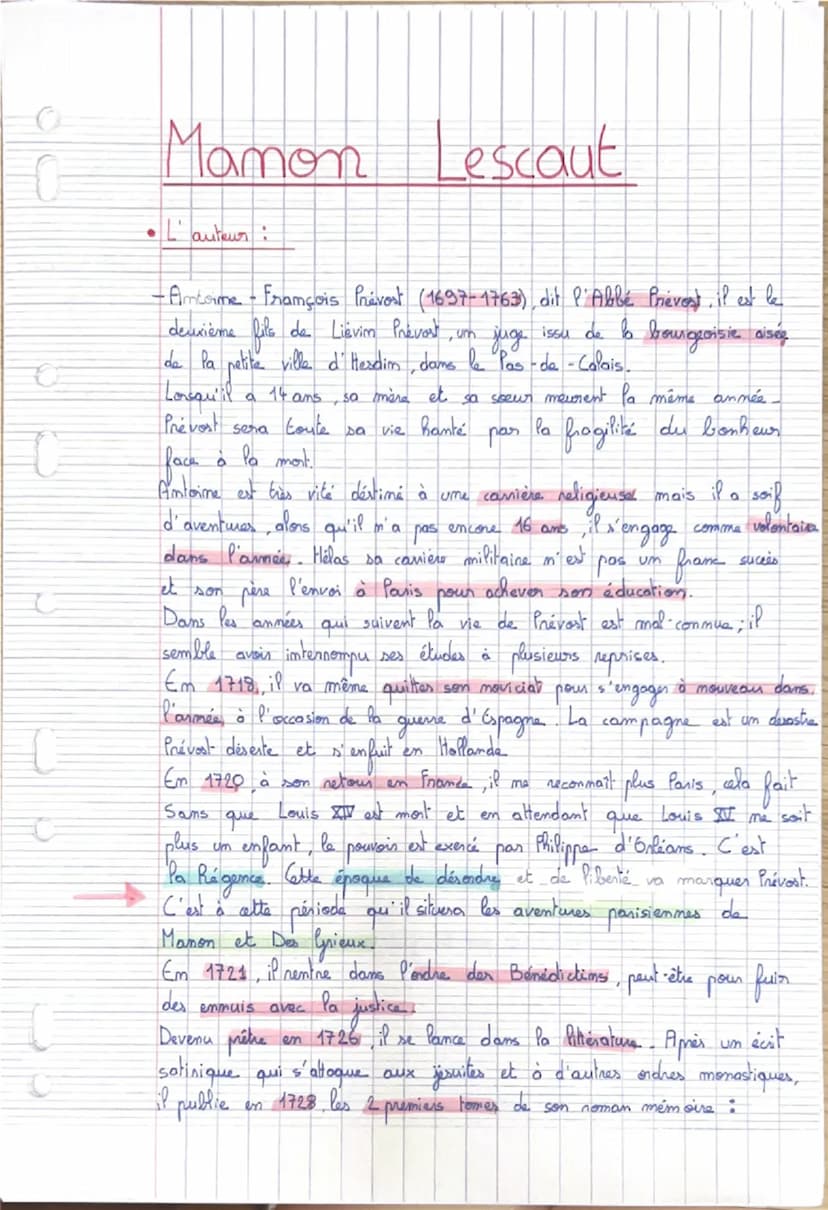 Manon Lescaut
• L'auteur :
- Antoine - François Prévost (1697-1763), dit l'Abbé Prévost, il est le
deuxième fils de Liévin Prévost, un juge issu de la bourgeoisie aisée
de la petite ville d'Hesdin, dans le Pas-de-Calais.
Lorsqu'il a 14 ans, sa mère et sa soeur meurent la même année.
Prévost sera toute sa vie hanté par la fragilité du bonheur
face à la mort.
Antoine est très vité déstiné à une carrière religieuse mais il a soif
d'aventures, alors qu'il n'a pas encore 16 ans, il s'engage comme volontaire
dans l'armée. Hélas sa carrière militaire n'est pas un franc succès
et son père l'envoi à Paris pour achever son éducation.
Dans les années qui suivent la vie de Prévost est mal-connue ; il
semble avoir interrompu ses études à plusieurs reprises.
En 1718, il va même quitter son noviciat pour s'engager à nouveau dans
l'armée, à l'occasion de la guerre d'Espagne. La campagne est un desastre
Prévost déserte et s'enfuit en Hollande
En 1720, à son retour en France, il ne reconnaît plus Paris, cela fait
5ans que Louis XIV est mort et en attendant que Louis XV ne soit
plus un enfant, le pouvoir est exercé par Philippe d'Orléans. C'est
la Régence. Cette époque de désordre et de liberté va marquer Prévost.
C'est à cette période qu'il situera les aventures parisiennes de
Manon et Des Grieux.
En 1721, il rentre dans l'ordre des Bénédictins, peut-être pour fuir
des ennuis avec la justice.
Devenu prêtre en 1726, il se lance dans la littérature. Après un écit
satirique qui s'attaque aux jésuites et à d'autres ordres monastiques,
il publie en 1728, les 2 premiers tomes de son roman mémoire :